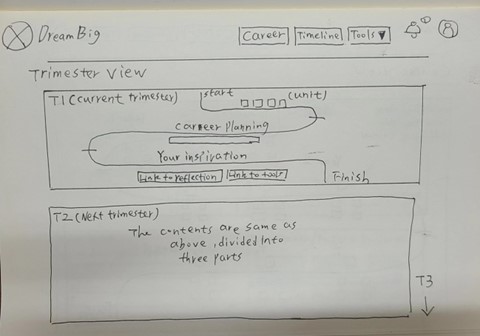 DreamBig
Career Timeline Tools ▼
Trimester View
T1 (current trimester)
start
(unit)
Career planning
Your inspiration
Link to reflection Link to tools
Finish
T2 (Next trimester)
The contents are same as
above, divided into
three parts
T3